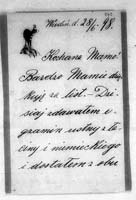 Wiedeń d. 28/6 98.
Kochana Mamo!
Bardzo Mamie dzię-
kuję za list. – Dzi-
siaj zdawałem e-
gzamin ustny z ła-
ciny i niemieckiego
i dostałem z obu